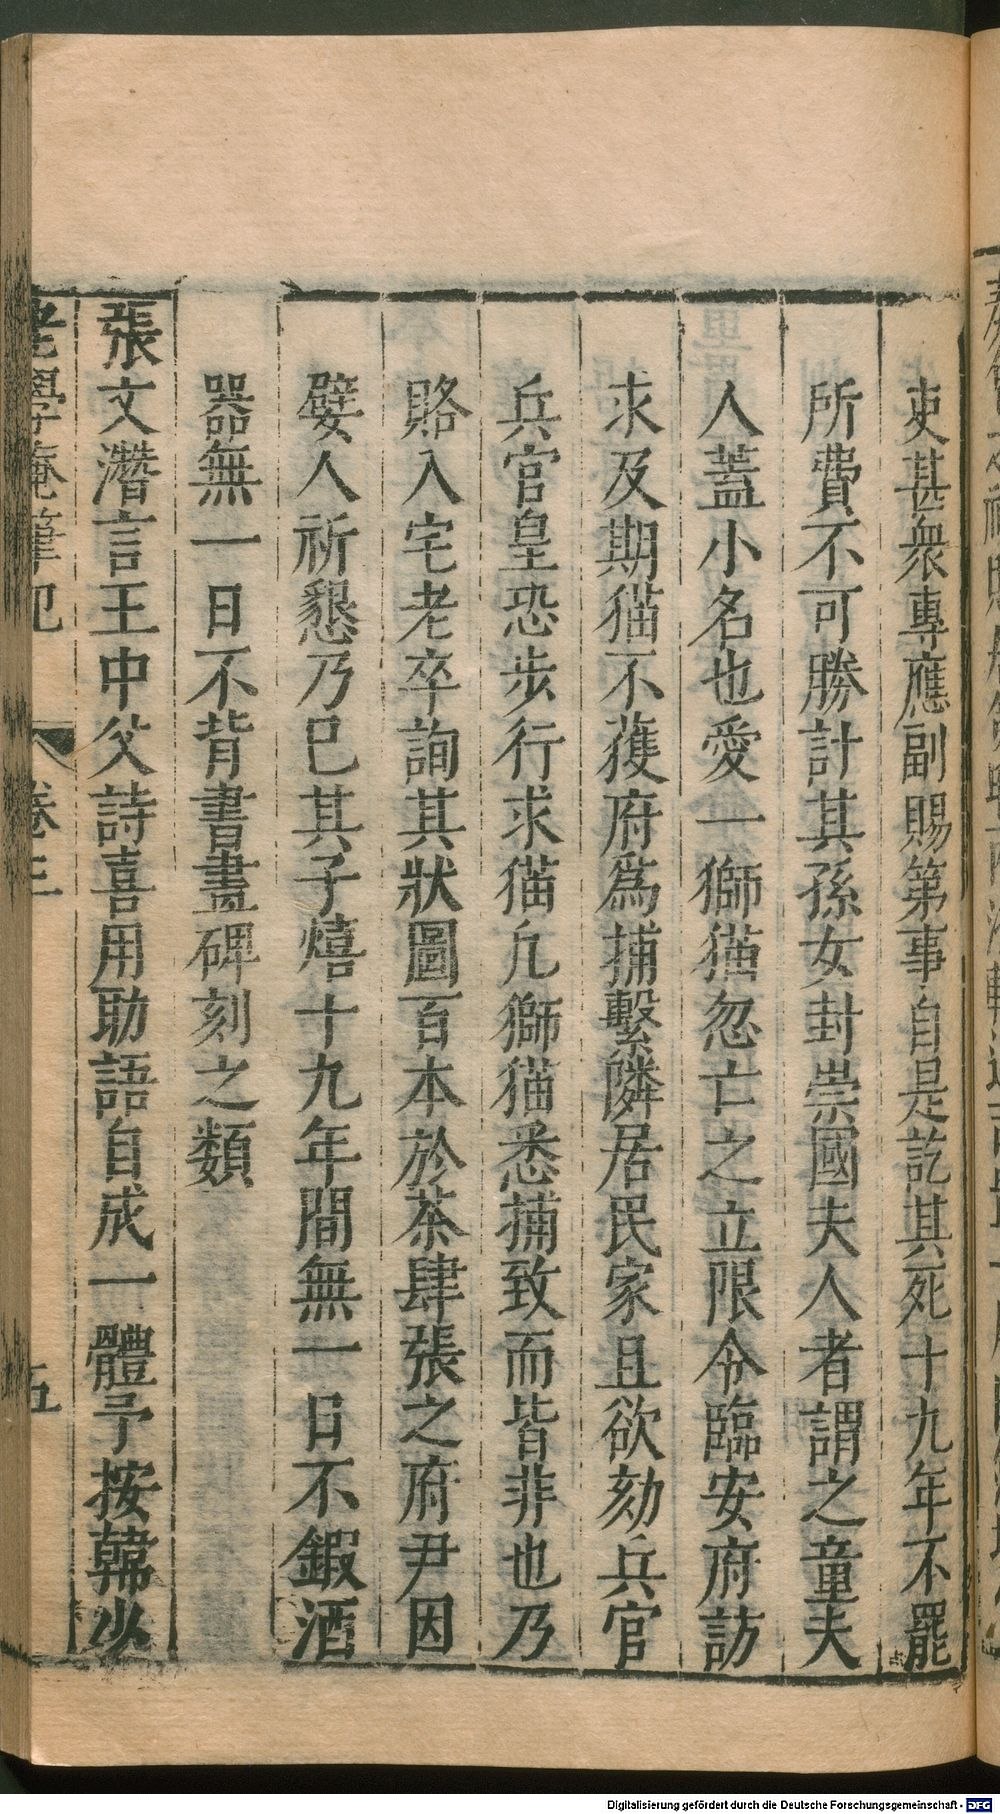 吏甚衆專應副賜第事自是訖其死十九年不罷
所費不可勝計其孫女封崇國夫人者謂之童夫
人蓋小名也愛一獅猫忽亡之立限令臨安府訪
求及期猫不獲府爲捕繫隣居民家且欲劾兵官
兵官皇恐步行求猫凢獅猫悉捕致而皆非也乃
賂入宅老卒詢其狀圖百本於茶肆張之府尹因
嬖人祈懇乃已其子熺十九年間無一日不鍜酒
器無一日不背書畫碑刻之類
張文潛言王中父詩喜用助語自成一體予按韓少
老學庵筆記
卷三
五
Digitalisierung gefördert durch die Deutsche Forschungsgemeinschaft - DFG